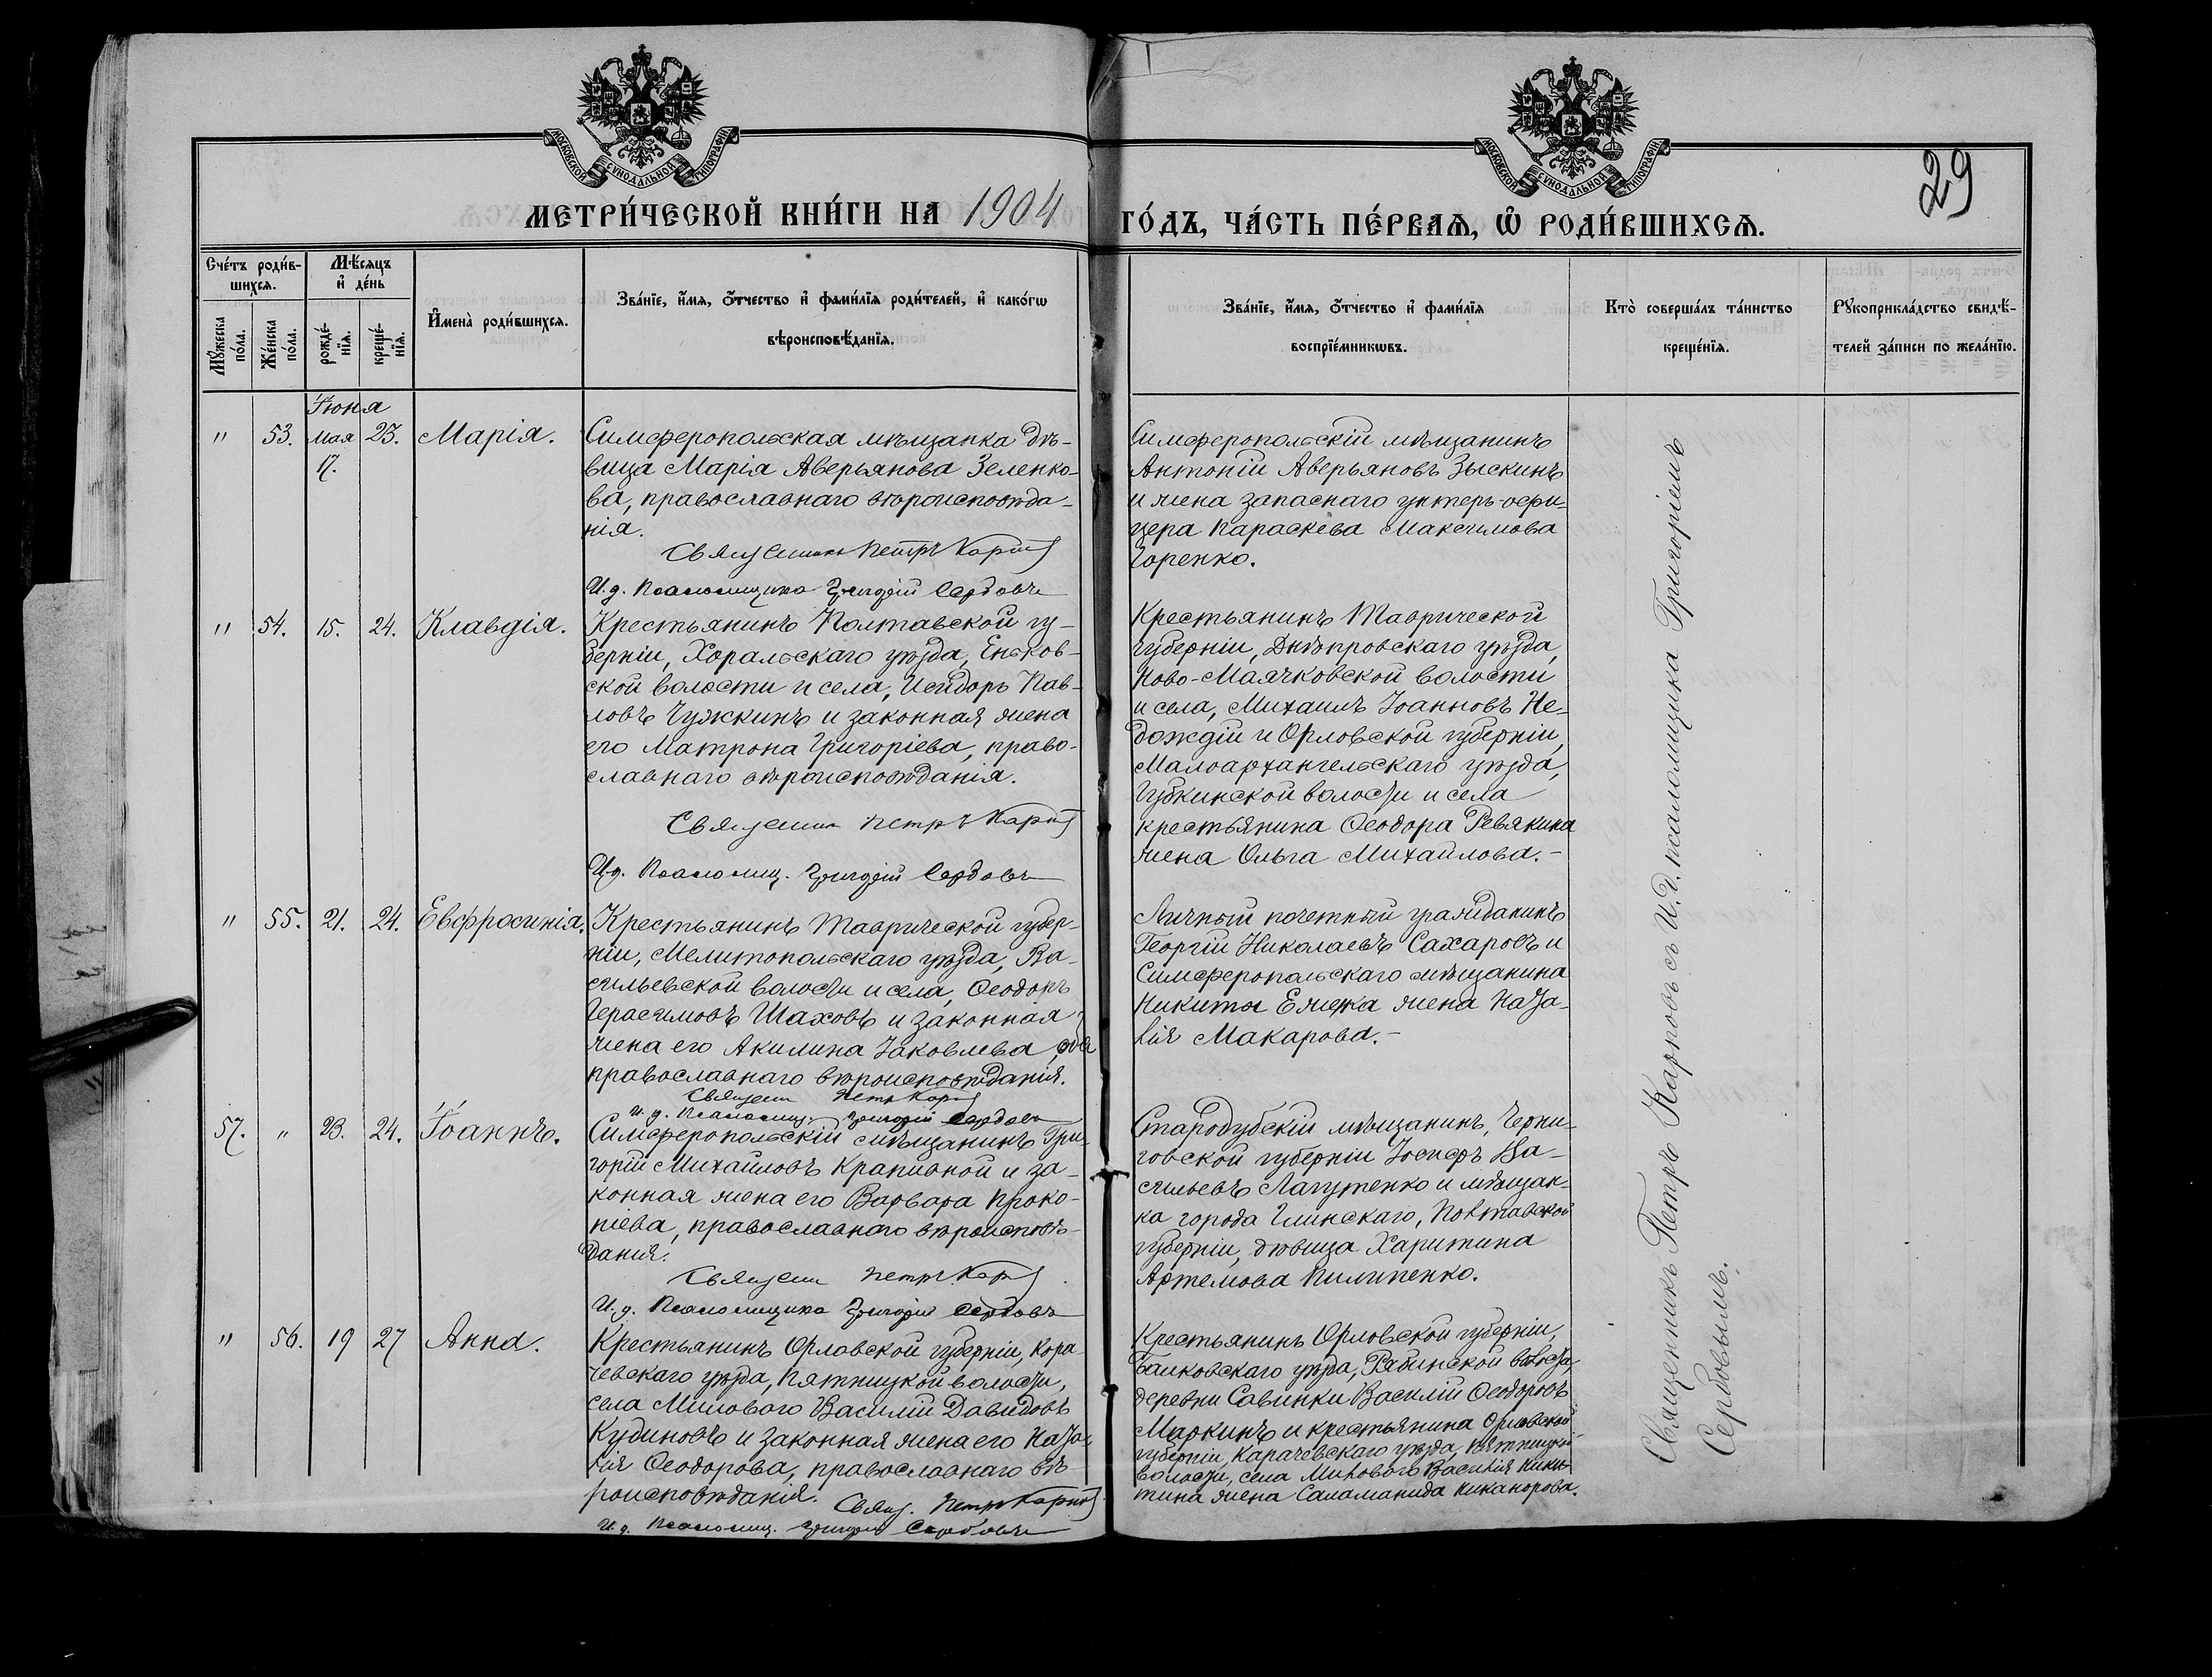 МОСКОВСКОЙ СѴНОДАЛЬНОЙ ТИПОГРАФІИ
МОСКОВСКОЙ СѴНОДАЛЬНОЙ ТИПОГРАФІИ
29
МЕТРИ́ЧЕСКОЙ КНИ́ГИ НА 1904 ГО́ДЪ, ЧА́СТЬ ПЕ́РВАѦ, Ѽ РОДИ́ВШИХСѦ.
Сче́тъ роди́в-
шихсѧ.
Мꙋ́жеска по́ла.
Же́нска по́ла.
Мѣ́сѧцъ
и҆ де́нь
рожде́-
нїѧ.
креще́-
нїѧ.
И҆мена̀ роди́вшихсѧ.
Зва́нїе, и҆́мѧ, ѻ҆́тчество и҆ фами́лїѧ роди́телей, и҆ како́гѡ
вѣроисповѣ́данїѧ.
Зва́нїе, и҆́мѧ, ѻ҆́тчество и҆ фами́лїѧ
воспрїе́мникѡвъ.
Кто̀ соверша́лъ та́инство
креще́нїѧ.
Рꙋкоприкла́дство свидѣ́-
телей за́писи по жела́нїю.
Іюня
" 53. Мая 23. Марія.
17.
Симферопольская мѣщанка дѣ-
вица Марія Аверьянова Зеленко-
ва, православнаго вѣроисповѣда-
нія.
Священникъ Петръ Карповъ
И.д. Псаломщика Григорій Сербовъ
Симферопольскій мѣщанинъ
Антоній Аверьяновъ Зыскинъ
и жена запаснаго унтеръ-офи-
цера Параскева Максимова
Горенко.
" 54. 15. 24. Клавдія.
Крестьянинъ Полтавской гу-
берніи, Хоральскаго уѣзда, Еньков-
ской волости и села, Исидоръ Пав-
ловъ Чужкинъ и законная жена
его Матрона Григоріева, право-
славнаго вѣроисповѣданія.
Священникъ Петръ Карповъ
И.д. Псаломщ. Григорій Сербовъ
Крестьянинъ Таврической
губерніи, Днѣпровскаго уѣзда,
Ново-Маячковской волости
и села, Михаилъ Іоанновъ Не-
дождій и Орловской губерніи,
Малоархангельскаго уѣзда,
Губкинской волости и села
крестьянина Ѳеодора Ревякина
жена Ольга Михайлова.-
" 55. 21. 24. Евфросинія.
Крестьянинъ Таврической губер-
ніи, Мелитопольскаго уѣзда, Ва-
сильевской волости и села, Ѳеодоръ
Герасимовъ Шаховъ и законная
жена его Акилина Іаковлева, оба
православнаго вѣроисповѣданія.
Священ. Петръ Карповъ
И.д. Псаломщ. Григорій Сербовъ
Личный почетный гражданинъ
Георгій Николаевъ Сахаровъ и
Симферопольскаго мѣщанина
Никиты жена Ната-
лія Макарова.-
57. " 23. 24. Іоаннъ.
Симферопольскій мѣщанинъ Гри-
горій Михайловъ Крапивной и за-
конная жена его Варвара Проко-
піева, православнаго вѣроисповѣ-
данія.
Священ. Петръ Карповъ
И.д. Псаломщика Григорій Сербовъ
Стародубскій мѣщанинъ, Черни-
говской губерніи Іосифъ Ва-
сильевъ Лагутенко и мѣщан-
ка города Глинскаго, Полтавской
губерніи, дѣвица Харитина
Артемова Пилипенко.
" 56. 19 27 Анна.
Крестьянинъ Орловской губерніи, Кора-
чевскаго уѣзда, Пятницкой волости,
села Милового Василій Давидовъ
Кудиновъ и законная жена его Ната-
лія Ѳеодорова, православнаго вѣ-
роисповѣданія. Свящ. Петръ Карповъ
И.д. Псаломщ. Григорій Сербовъ
Крестьянинъ Орловской губерніи,
уѣзда, Рябинской волости,
деревни Савинки Василій Ѳеодоровъ
Маркинъ и крестьянина Орловской
губерніи, Карачевскаго уѣзда, Пятницкой
волости, села Милового Василія Ники-
тина жена Саламанида Никанорова.
Священникъ Петръ Карповъ съ И.д. псаломщика Григоріемъ
Сербовымъ.